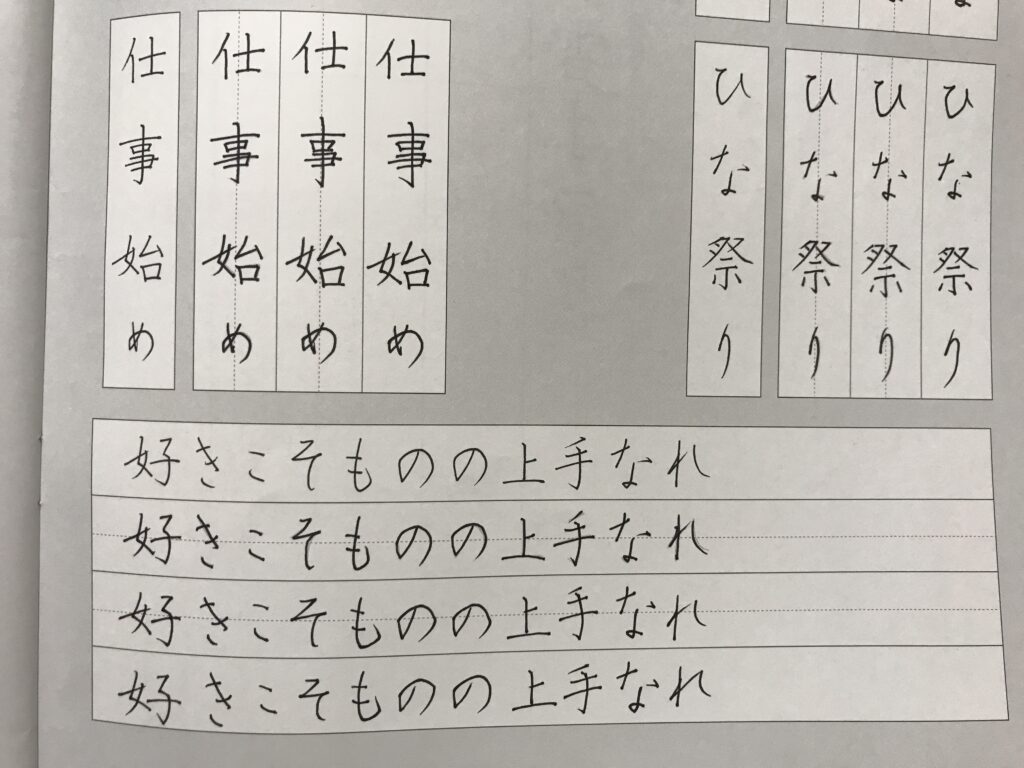 ひな祭り
ひな祭り
ひな祭り
ひな祭り
仕事始め
仕事始め
仕事始め
仕事始め
好きこそものの上手なれ
好きこそものの上手なれ
好きこそものの上手なれ
好きこそものの上手なれ